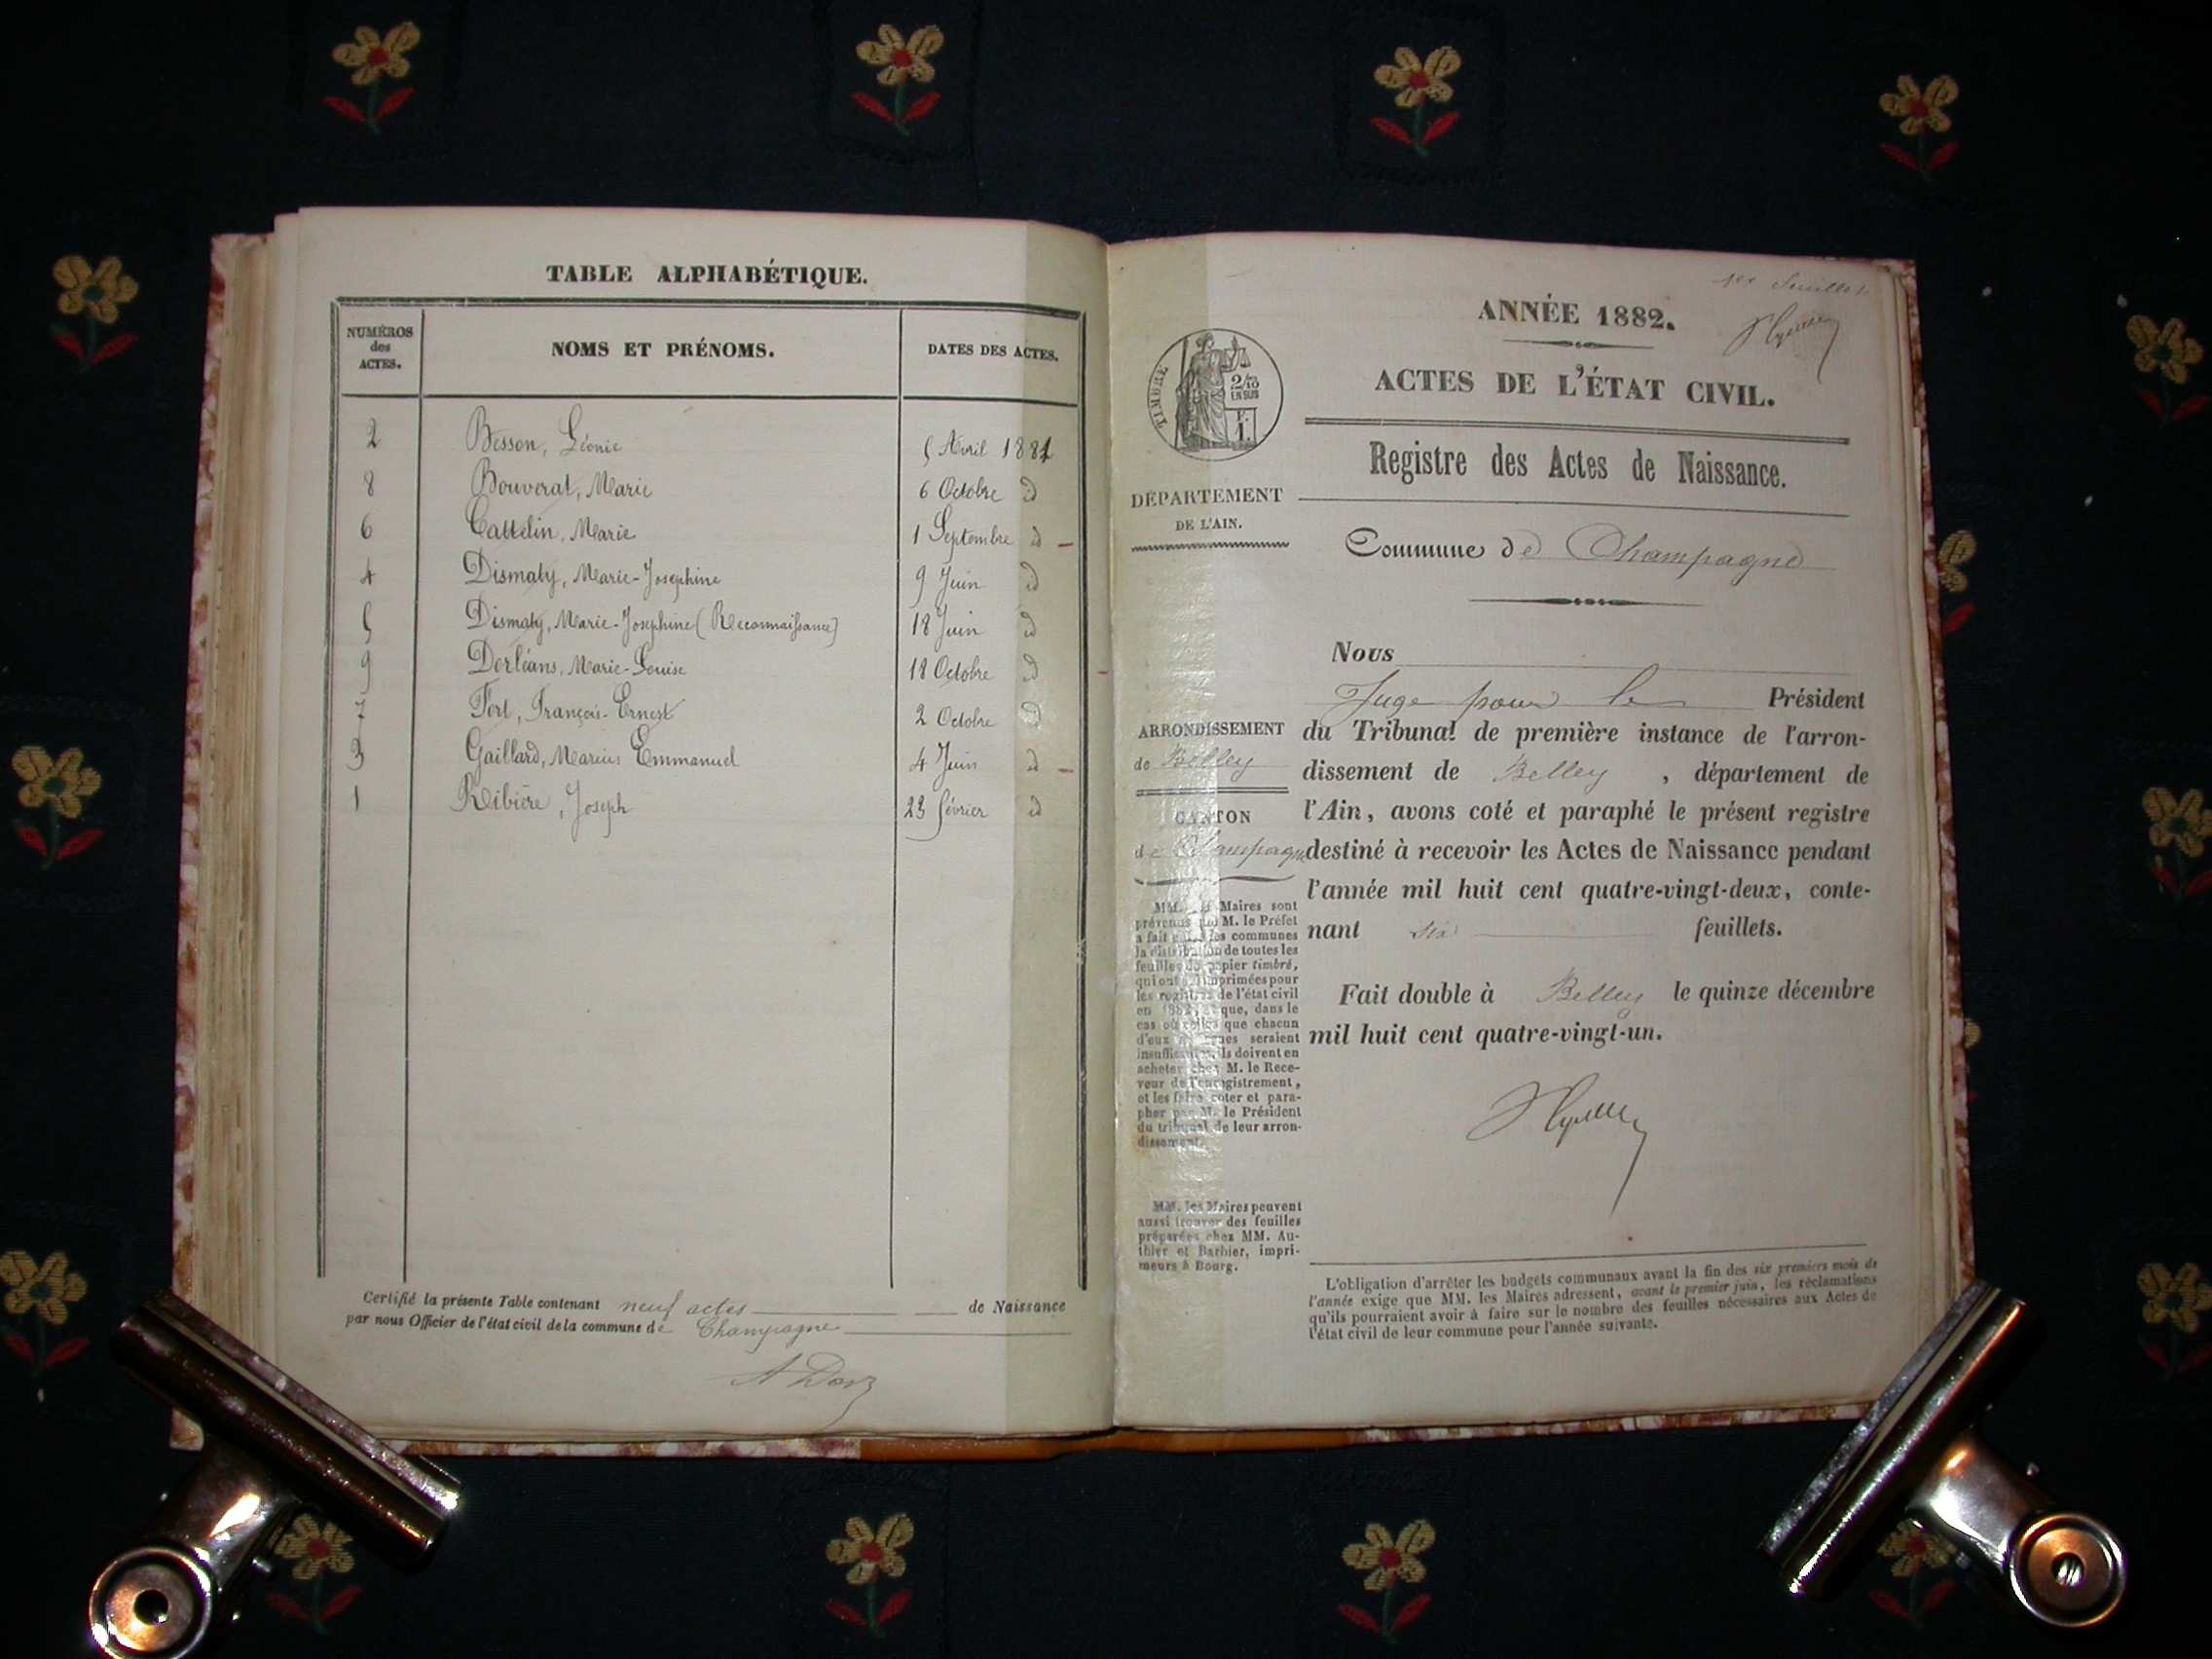 TABLE ALPHABÉTIQUE.
NUMÉROS des ACTES.
NOMS ET PRÉNOMS.
DATES DES ACTES.
2 Besson, Léonie 5 Avril 1881
8 Bouverat, Marie 6 Octobre d
6 Cattelin, Marie 1 Septembre d
4 Dismaty, Marie-Josephine 9 Juin d
5 Dismaty, Marie-Josephine (Reconnaissance) 18 Juin d
9 Dorléans, Marie-Louise 18 Octobre d
7 Fort, François-Ernest 2 Octobre d
3 Gaillard, Marius Emmanuel 4 Juin d
1 Ribière, Joseph 23 février d
Certifié la présente Table contenant neuf actes de Naissance
par nous Officier de l'état civil de la commune de Champagne
1er feuillet
ANNÉE 1882.
ACTES DE L'ÉTAT CIVIL.
Registre des Actes de Naissance.
Commune de Champagne
TIMBRE
2/10
EN SUS
F.
1.
DÉPARTEMENT
DE L'AIN.
ARRONDISSEMENT
de Belley
CANTON
de Champagne
MM. les Maires sont
prévenus que M. le Préfet
a fait à tous les communes
la distribution de toutes les
feuilles de papier timbré,
qui ont été imprimées pour
les registres de l'état civil
en 1882, et que, dans le
cas où celles que chacun
d'eux a reçues seraient
insuffisantes, ils doivent en
acheter chez M. le Rece-
veur de l'enregistrement,
et les faire coter et para-
pher par M. le Président
du tribunal de leur arron-
dissement.
MM. les Maires peuvent
aussi trouver des feuilles
préparées chez MM. Au-
thier et Barbier, impri-
meurs à Bourg.
Nous
Juge pour le Président
du Tribunal de première instance de l'arron-
dissement de Belley, département de
l'Ain, avons coté et paraphé le présent registre
destiné à recevoir les Actes de Naissance pendant
l'année mil huit cent quatre-vingt-deux, conte-
nant six feuillets.
Fait double à Belley le quinze décembre
mil huit cent quatre-vingt-un.
L'obligation d'arrêter les budgets communaux avant la fin des six premiers mois de
l'année exige que MM. les Maires adressent, avant le premier juin, les réclamations
qu'ils pourraient avoir à faire sur le nombre des feuilles nécessaires aux Actes de
l'état civil de leur commune pour l'année suivante.